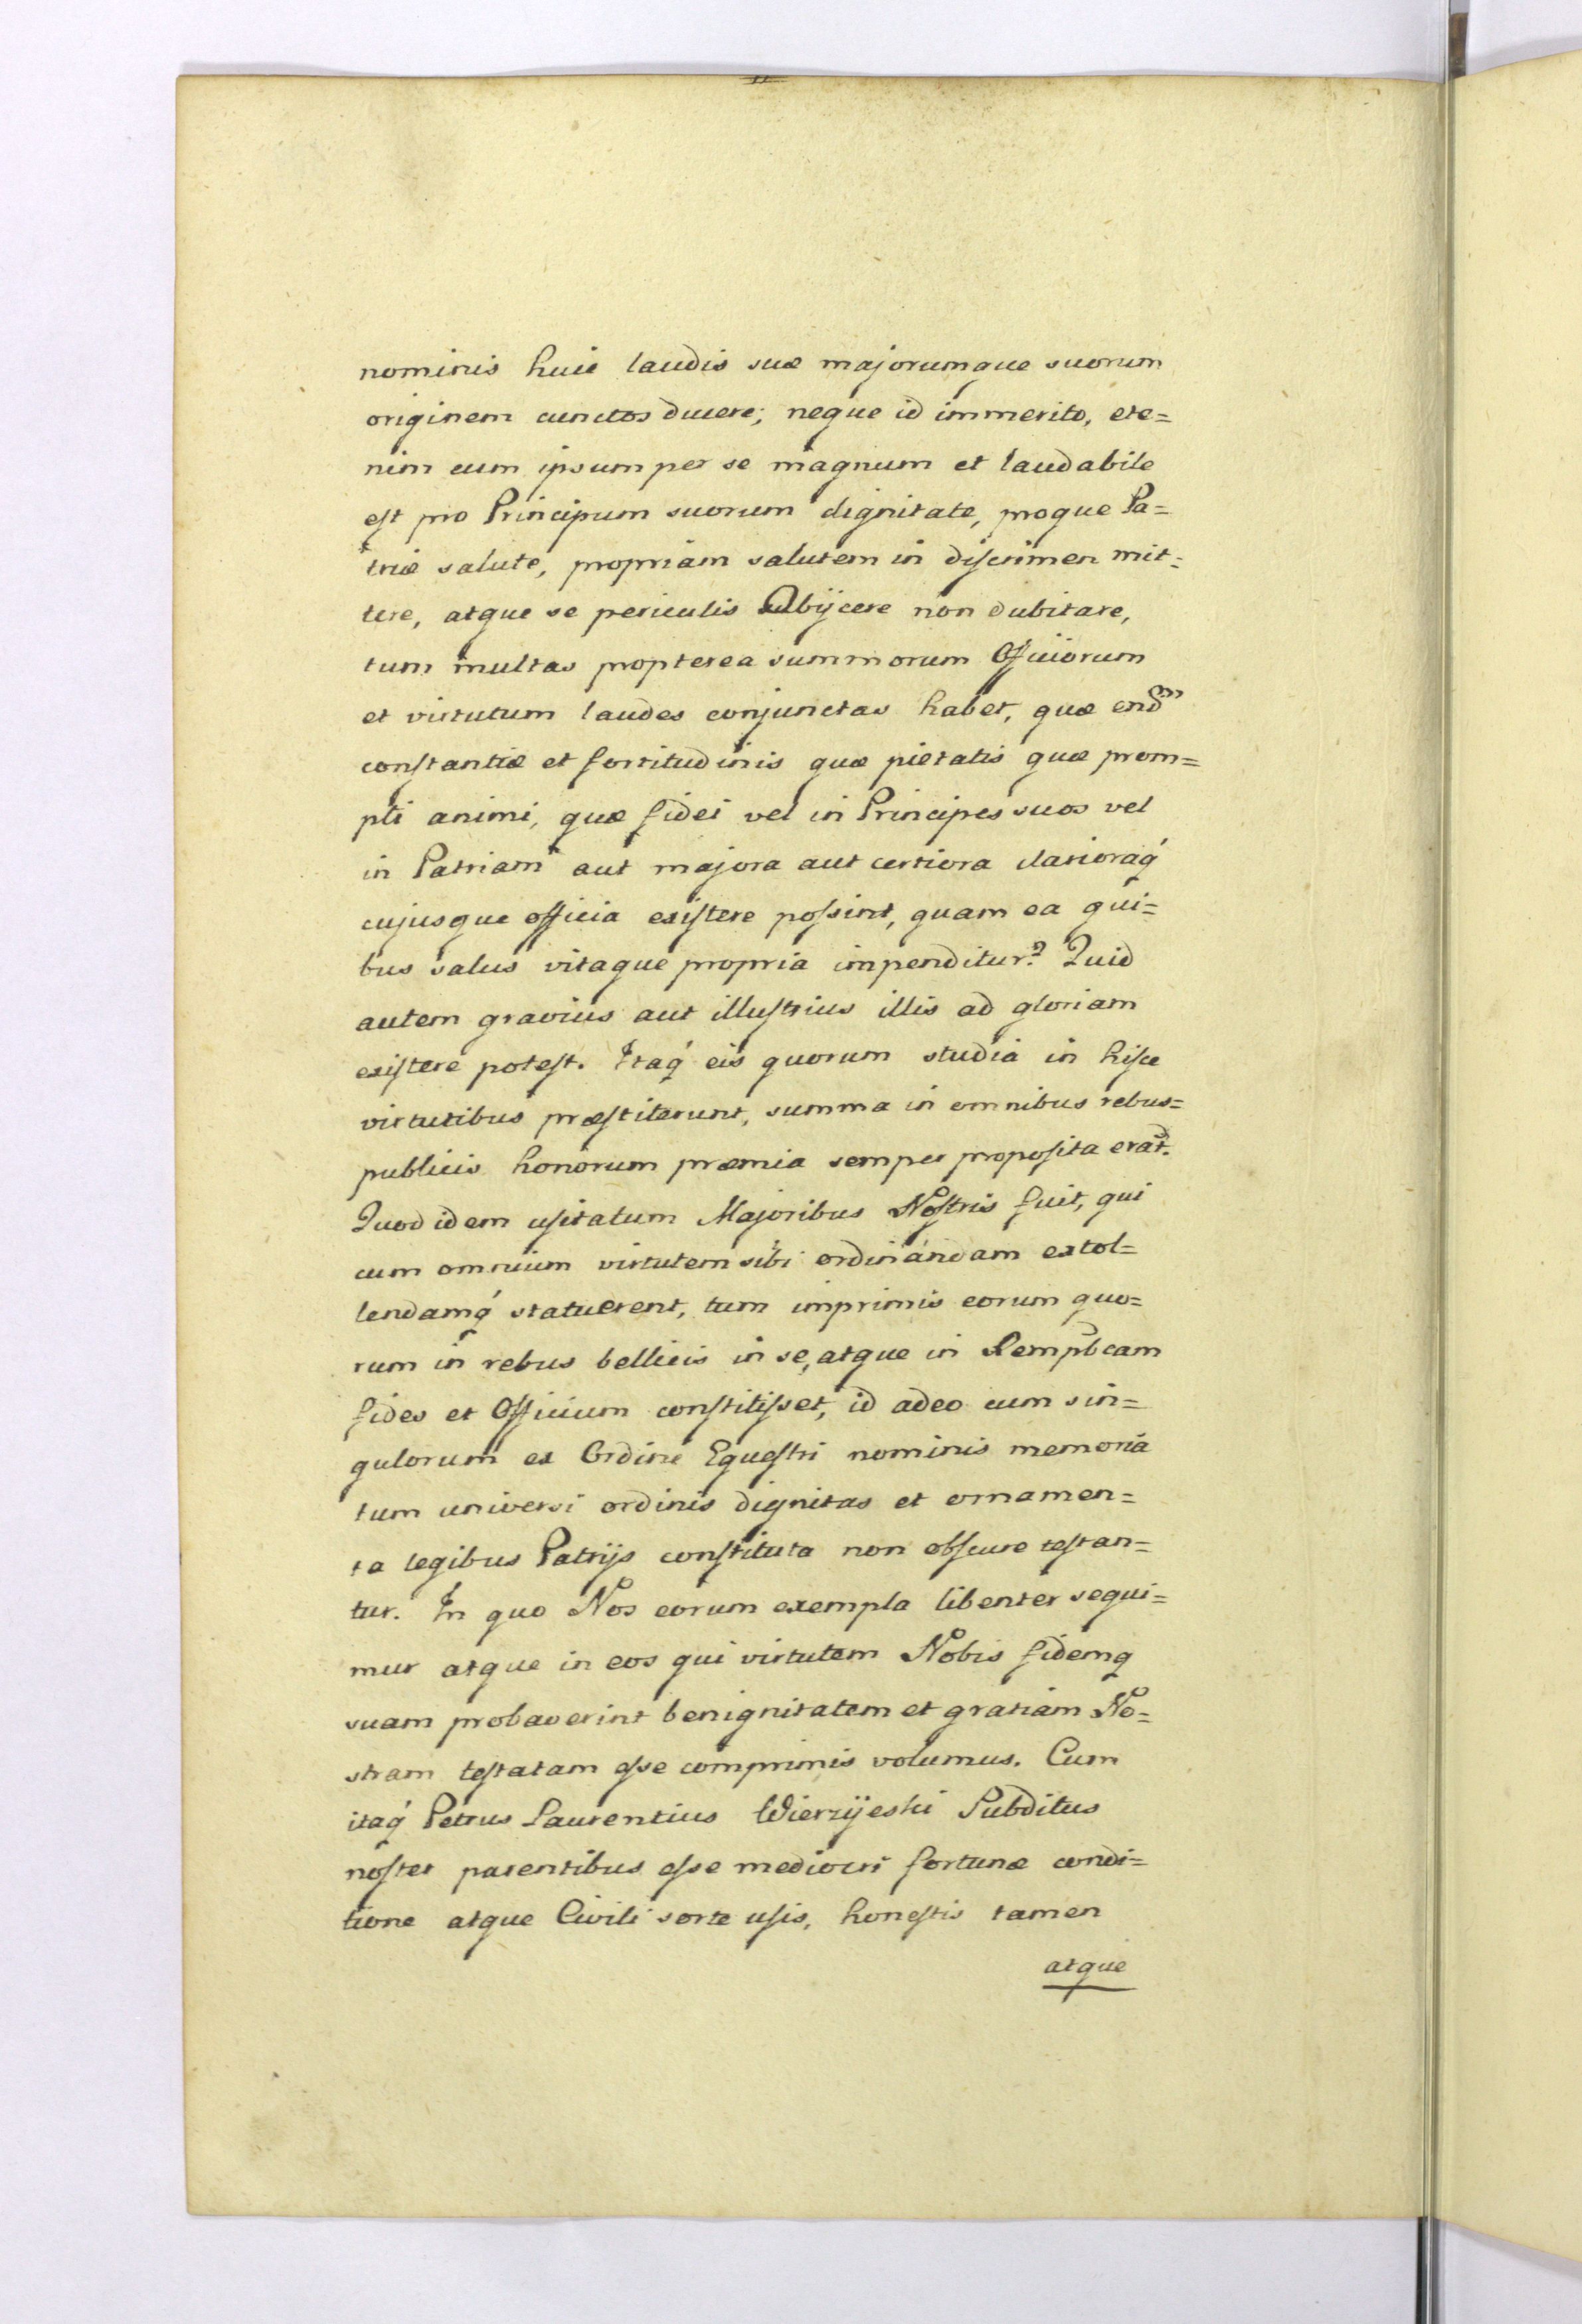 nominis huic laudis suæ majorumque suorum
originem cunctos ducere; neque id immerito, ete=
nim cum ipsum per se magnum et laudabile
est pro Principum suorum dignitate, proque Pa=
triæ salute, propriam salutem in discrimen mit=
tere, atque se periculis subijcere non dubitare,
tum multas propterea summorum Officiorum
et virtutum laudes conjunctas habet, quæ end̃m
constantiæ et fortitudinis quæ pietatis quæ prom=
pti animi, quæ fidei vel in Principes suos vel
in Patriam aut majora aut certiora clarioraq́
cujusque officia existere possint, quam ea qui=
bus salus vitaque propria impenditur? Quid
autem gravius aut illustrius illis ad gloriam
existere potest. Itaq́ eis quorum studia in hisce
virtutibus præstiterunt, summa in omnibus rebus=
publicis honorum præmia semper proposita erãt.
Quod idem usitatum Majoribus Nostris fuit, qui
cum omnium virtutem sibi ordinandam extol=
lendamq́ statuerent, tum imprimis eorum quo=
rum in rebus bellicis in se, atque in Rempb̃cam
fides et Officium constitisset, id adeo cum sin=
gulorum ex Ordine Equestri nominis memoria
tum universi ordinis dignitas et ornamen=
ta legibus Patrijs constituta non obscure testan=
tur. In quo Nos eorum exempla libenter sequi=
mur atque in eos qui virtutem Nobis fidemq
suam probaverint benignitatem et gratiam No=
stram testatam esse comprimis volumus. Cum
itaq́ Petrus Laurentius Wierzijeski Subditus
noster parentibus esse mediocri fortunæ condi=
tione atque Civili sorte usis, honestis tamen
atque